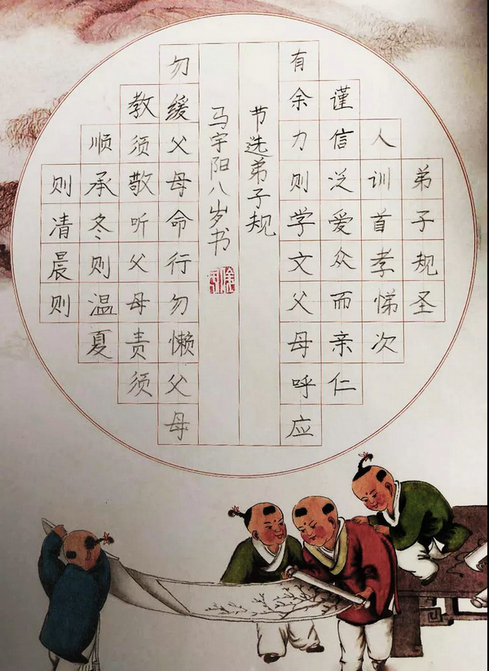 弟子规圣
人训首孝悌次
谨信泛爱众而亲仁
有余力则学文父母呼应
节选弟子规
马宇阳八岁书
勿缓父母命行勿懒父母
教须敬听父母责须
顺承冬则温夏
则清晨则